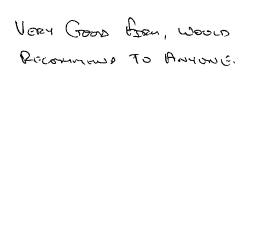 VERY GOOD FIRM, WOULD
RECOMMEND TO ANYONE.